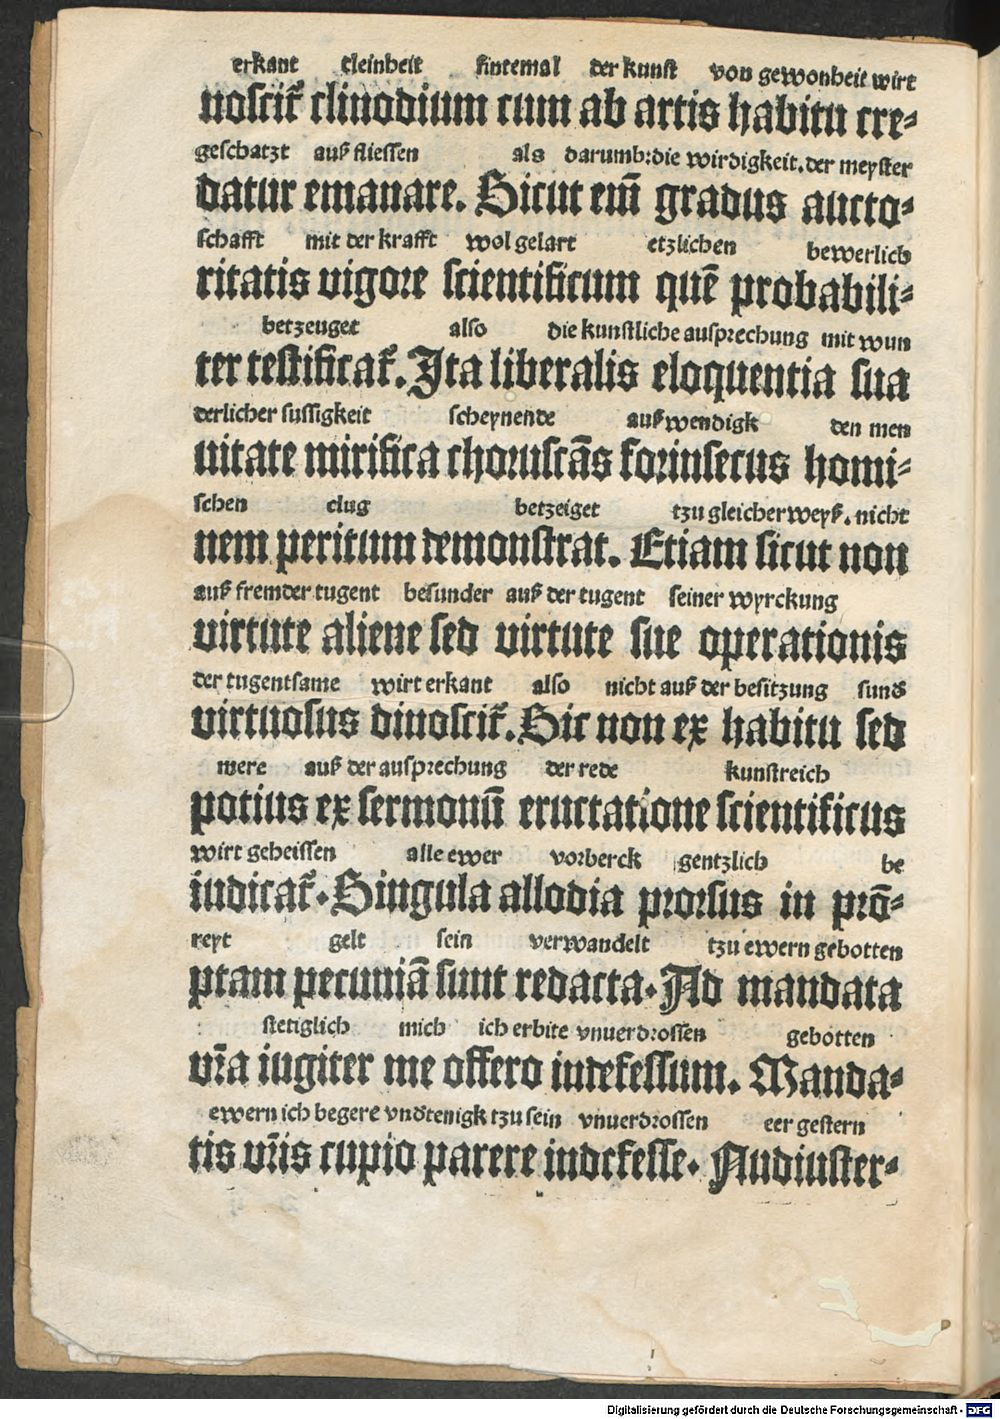 erkant cleinheit sintemal der kunst von gewonheit wirt
noscit᷑ clinodium cum ab artis habitu cre⸗
geschatzt auß fliessen als darumb:die wirdigkeit.der meyster
datur emanare. Sicut em̄ gradus aucto⸗
schafft mit der krafft wol gelart etzlichen bewerlich
ritatis vigore scientificum quē probabili⸗
betzeuget also die kunstliche ausprechung mit wun
ter testificat᷑. Ita liberalis eloquentia sua
derlicher sussigkeit scheynende außwendigk den men
uitate mirifica choruscās forinsecus homi⸗
schen clug betzeiget tzu gleicher weyß. nicht
nem peritum demonstrat. Etiam sicut non
auß fremder tugent besunder auß der tugent seiner wyrckung
virtute aliene sed virtute sue operationis
der tugentsame wirt erkant also nicht auß der besitzung sund᷑
virtuosus dinoscit᷑. Sic non ex habitu sed
mere auß der ausprechung der rede kunstreich
potius ex sermonū eructatione scientificus
wirt geheissen alle ewer vorberck gentzlich be
iudicat᷑. Singula allodia prorsus in prō⸗
reyt gelt sein verwandelt tzu ewern gebotten
ptam pecuniā sunt redacta. Ad mandata
stetiglich mich ich erbite vnuerdrossen gebotten
vr̄a iugiter me offero indefessum. Manda⸗
ewern ich begere vnd᷑tenigk tzu sein vnuerdrossen eer gestern
tis vr̄is cupio parere indefesse. Nudiuster⸗
Digitalisierung gefördert durch die Deutsche Forschungsgemeinschaft - DFG